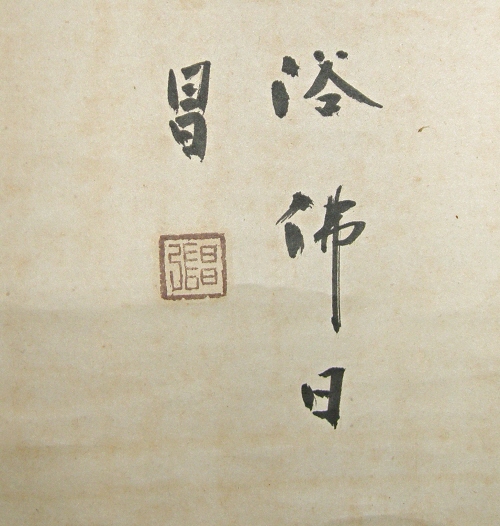 浴佛日
昌